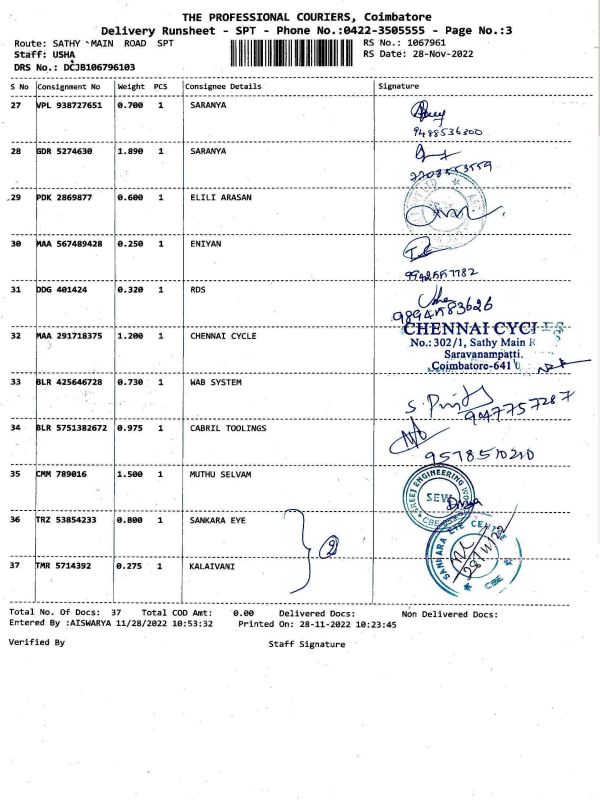 THE PROFESSIONAL COURIERS, Coimbatore
Delivery Runsheet - SPT - Phone No.:0422-3505555 - Page No.:3
Route: SATHY MAIN ROAD SPT
RS No.: 1067961
Staff: USHA
RS Date: 28-Nov-2022
DRS No.: DCJB106796103
S No Consignment No Weight PCS Consignee Details Signature
27 VPL 938727651 0.700 1 SARANYA
9488536300
28 GDR 5274630 1.890 1 SARANYA
29 PDK 2869877 0.600 1 ELILI ARASAN
30 MAA 567489428 0.250 1 ENIYAN
31 DDG 401424 0.320 1 RDS
32 MAA 291718375 1.200 1 CHENNAI CYCLE
CHENNAI CYCLES
No.: 302/1, Sathy Main R
Saravanampatti.
Coimbatore-641
33 BLR 425646728 0.730 1 WAB SYSTEM
9047757287
34 BLR 5751382672 0.975 1 CABRIL TOOLINGS
9578510210
35 CMM 789016 1.500 1 MUTHU SELVAM
SREEJ ENGINEERING WORKS
SEW
CBE
Divya
36 TRZ 53854233 0.800 1 SANKARA EYE
2
SANKARA EYE CENTRE
CBE
28/11/22
37 TMR 5714392 0.275 1 KALAIVANI
Total No. Of Docs: 37 Total COD Amt: 0.00 Delivered Docs: Non Delivered Docs:
Entered By :AISWARYA 11/28/2022 10:53:32 Printed On: 28-11-2022 10:23:45
Verified By Staff Signature